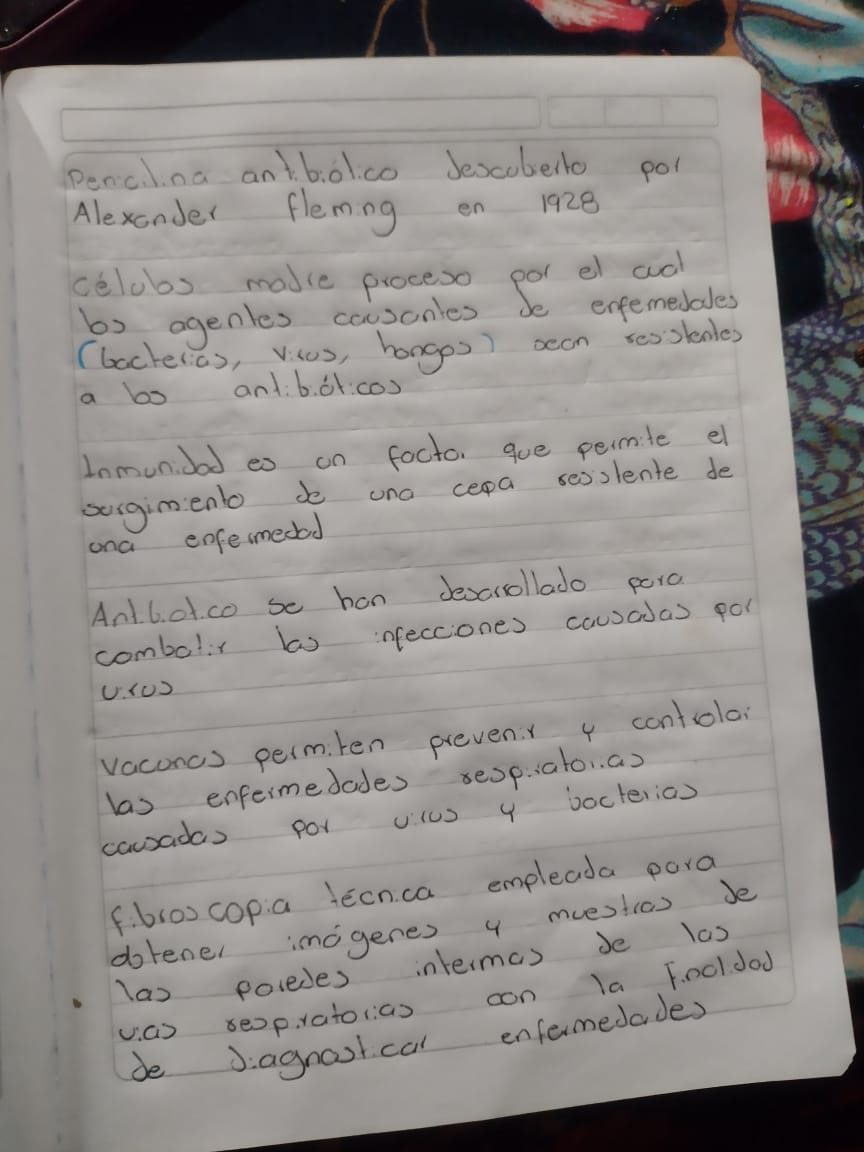 Penicilina antibiótico descubierto por
Alexander fleming en 1928
células madre proceso por el cual
los agentes causantes de enfemedades
(bacterias, virus, hongos) sean resistentes
a los antibióticos
Inmunidad es un factor que permite el
surgimiento de una cepa resistente de
una enfermedad
Antibiotico se han desarrollado para
combatir las infecciones causadas por
virus
Vacunas permiten prevenir y controlar
las enfermedades respiratorias
causadas por virus y bacterias
fibroscopia técnica empleada para
obtener imágenes y muestras de
las paredes internas de las
vias respiratorias con la finalidad
de diagnosticar enfermedades